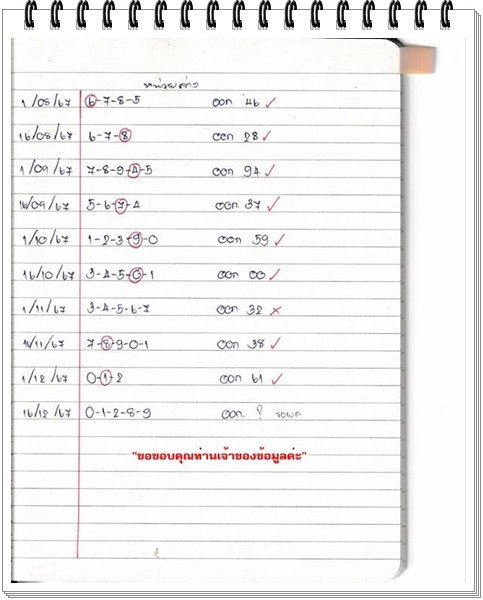 หน่วยล่าง
1/08/67 6-7-8-5 ออก 46 ✓
16/08/67 6-7-8 ออก 28 ✓
1/09/67 7-8-9-4-5 ออก 94 ✓
16/09/67 5-6-7-4 ออก 37 ✓
1/10/67 1-2-3-9-0 ออก 59 ✓
16/10/67 3-4-5-0-1 ออก 00 ✓
1/11/67 3-4-5-6-7 ออก 32 ✗
16/11/67 7-8-9-0-1 ออก 38 ✓
1/12/67 0-1-2 ออก 61 ✓
16/12/67 0-1-2-8-9 ออก. ?
"ขอขอบคุณท่านเจ้าของข้อมูลค่ะ"